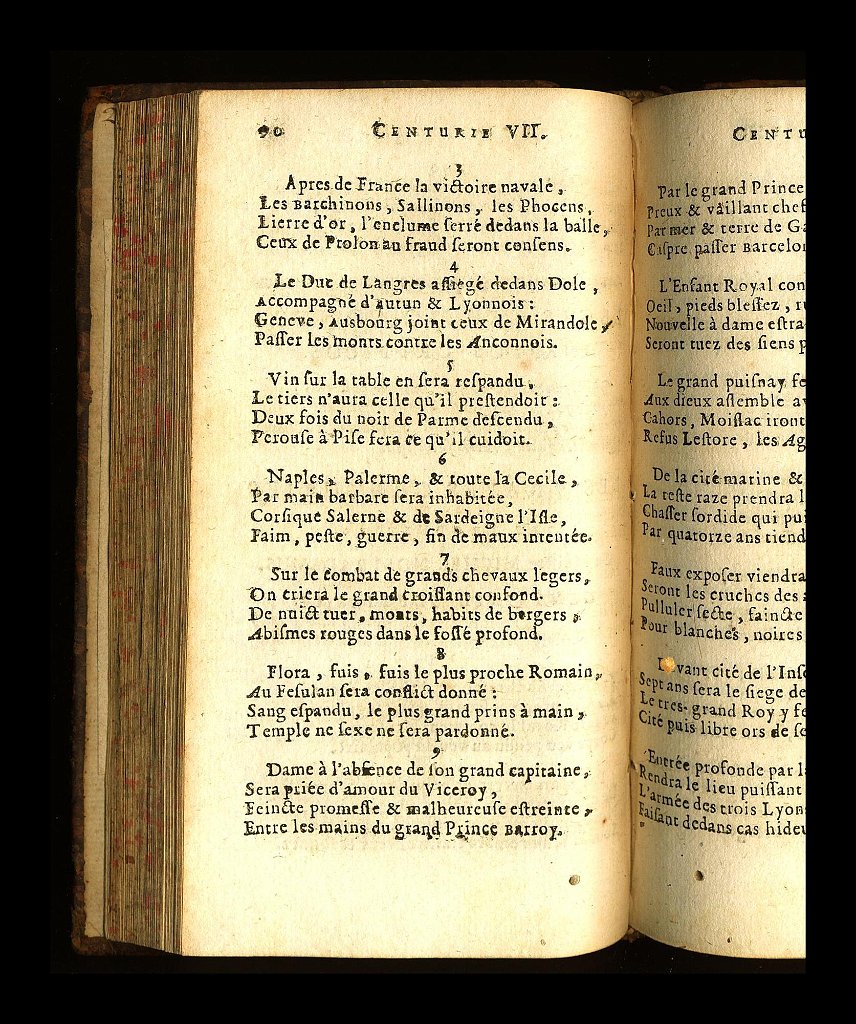 90 CENTURIE VII.
3
Apres de France la victoire navale,
Les Barchinons, Sallinons, les Phocens,
Lierre d'or, l'enclume serré dedans la balle,
Ceux de Ptolon au fraud seront consens.
4
Le Duc de Langres assiegé dedans Dole,
Accompagné d'autun & Lyonnois:
Geneve, Ausbourg joint ceux de Mirandole,
Passer les monts contre les Anconnois.
5
Vin sur la table en sera respandu,
Le tiers n'aura celle qu'il prestendoit:
Deux fois du noir de Parme descendu,
Perouse à Pise fera ce qu'il cuidoit.
6
Naples, Palerme, & toute la Cecile,
Par main barbare sera inhabitée,
Corsique Salerne & de Sardeigne l'Isle,
Faim, peste, guerre, fin de maux intentée.
7
Sur le combat de grands chevaux legers,
On criera le grand croissant confond.
De nuict tuer, monts, habits de bergers,
Abismes rouges dans le fossé profond.
8
Flora, fuis, fuis le plus proche Romain,
Au Fesulan sera conflict donné:
Sang espandu, le plus grand prins à main,
Temple ne sexe ne sera pardonné.
9
Dame à l'absence de son grand capitaine,
Sera priée d'amour du Viceroy,
Feincte promesse & malheureuse estreinte,
Entre les mains du grand Prince Barroy.
CENTU
Par le grand Prince
Preux & vaillant chef
Par mer & terre de
Caspre passer
L'Enfant Royal con
Oeil, pieds blessez,
Nouvelle à dame
Seront tuez des siens
Le grand puisnay
Aux dieux assemble
Cahors, Moissac iront
Refus Lestore, les
De la cité marine &
La teste raze prendra
Chasser sordide qui
Par quatorze ans
Faux exposer viendra
Seront les cruches des
Pulluler secte, faincte
Pour blanches, noires
vant cité de
Sept ans sera le siege de
Le tres-grand Roy y
Cité puis libre ors de
Entrée profonde par
Rendra le lieu puissant
L'armée des trois Lyon
Faisant dedans cas